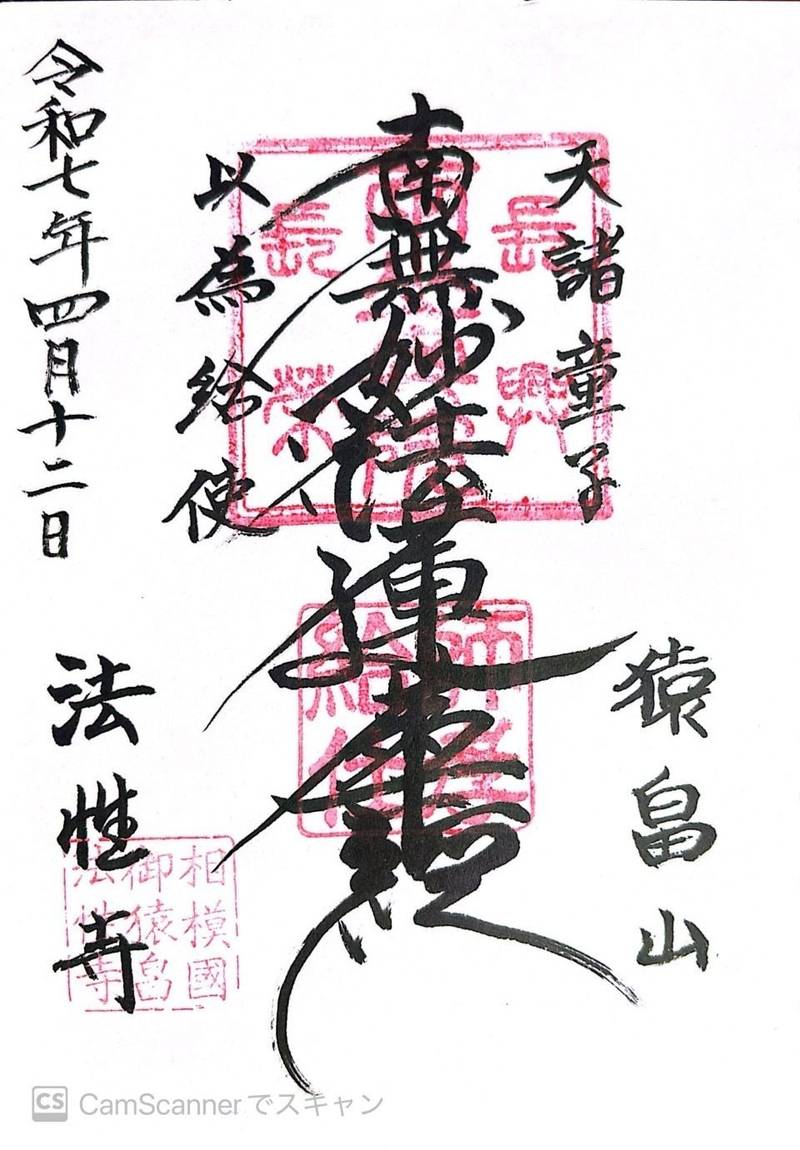 猿畠山
天諸童子
南無妙法蓮華経
以為給使
令和七年四月十二日
法性寺
長興
長榮
師孝
給仕
相模國
御猿畠
法性寺
CS CamScannerでスキャン